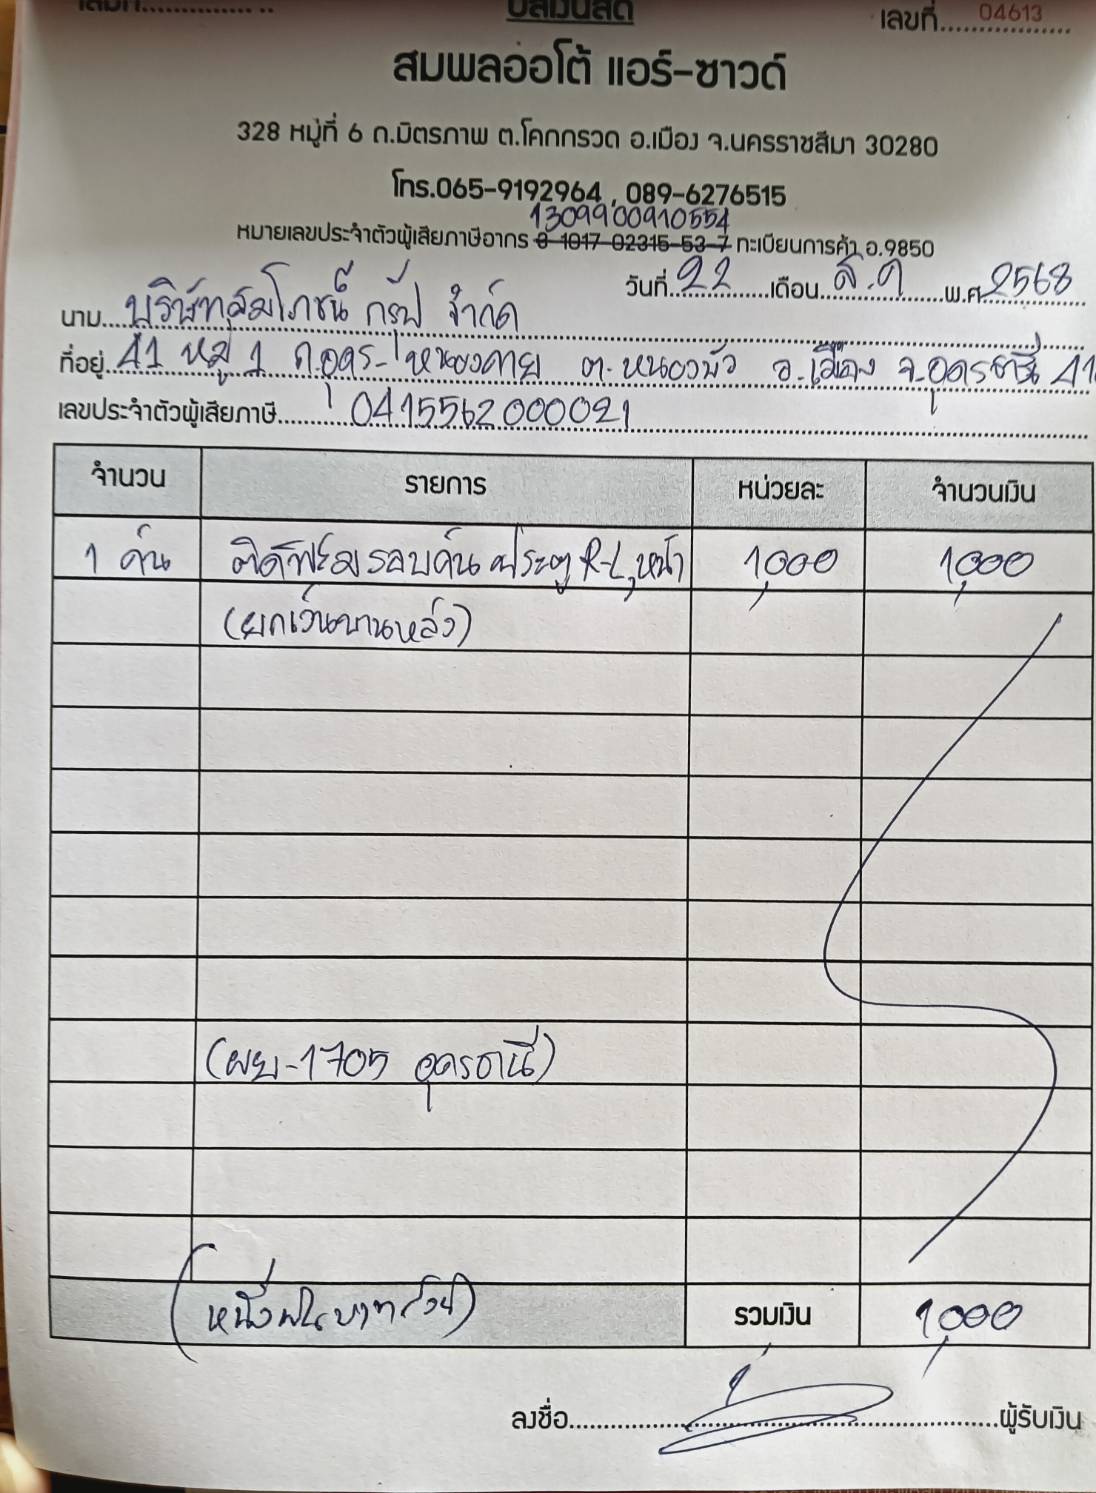 เล่มที่................
บิลเงินสด
เลขที่.................. 04613
สมพลออโต้ แอร์-ซาวด์
328 หมู่ที่ 6 ถ.มิตรภาพ ต.โคกกรวด อ.เมือง จ.นครราชสีมา 30280
โทร.065-9192964 , 089-6276515
1309900910554
หมายเลขประจำตัวผู้เสียภาษีอากร 3-1017-02315-53-7 ทะเบียนการค้า อ.9850
วันที่ 22 เดือน ส.ค พ.ศ 2568
นาม บริษัทสมโภชน์ กรุ๊ป จำกัด
ที่อยู่ 41 หมู่ 1 ถ.อุดร-หนองคาย ต.หนองบัว อ.เมือง จ.อุดรธานี 41
เลขประจำตัวผู้เสียภาษี 0415562000021
จำนวน รายการ หน่วยละ จำนวนเงิน
1 คัน ติดฟิล์มรอบคัน ประตู R-L, หน้า 1,000 1,000
(ยกเว้นบานหลัง)
(ผย-1705 อุดรธานี)
(หนึ่งพันบาทถ้วน) รวมเงิน 1,000
ลงชื่อ ผู้รับเงิน